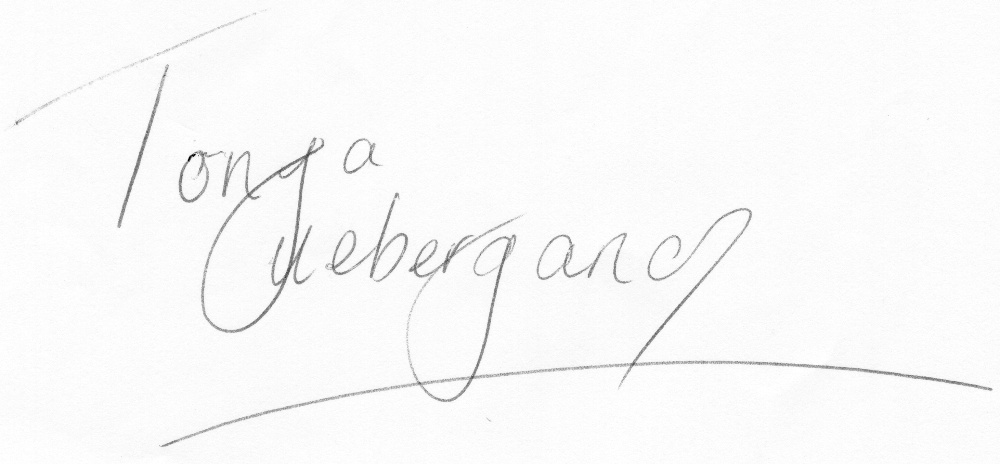 Tonga
Uebergang